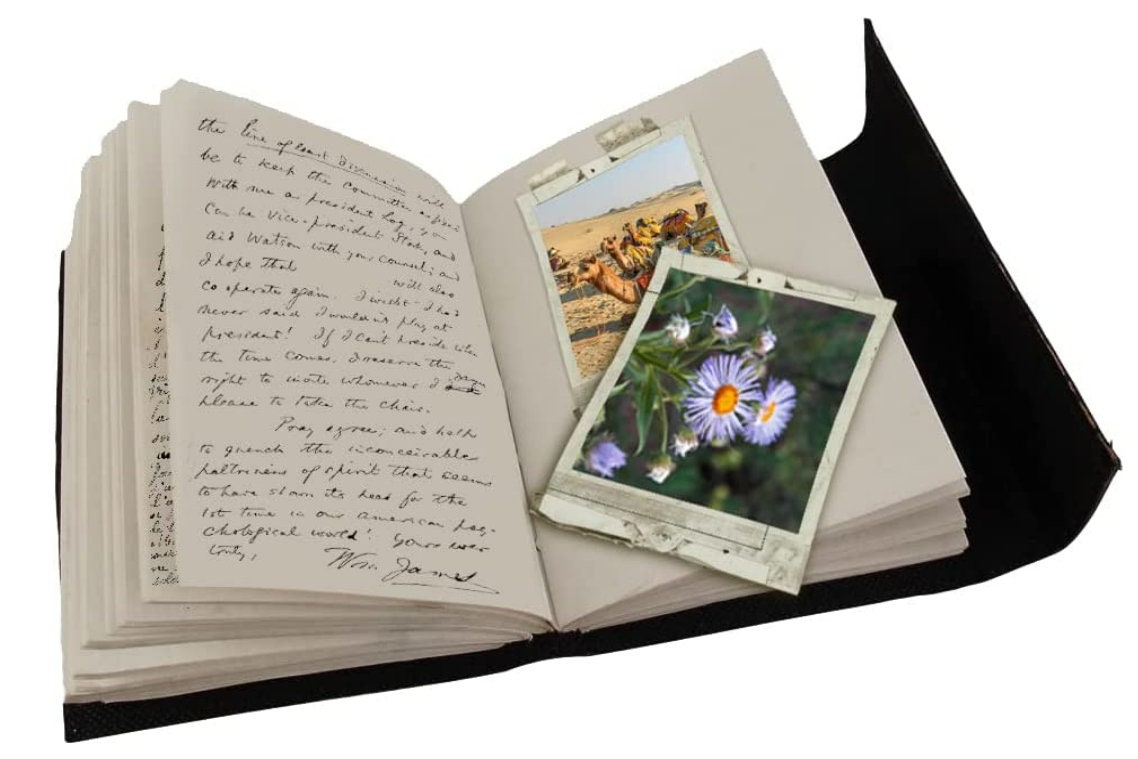 the line of least discussion will
be to keep the committee as it is
with me as president
can be Vice-president, and
aid Watson with your counsel; and
I hope that will also
cooperate again. I wish I had
never said I wouldn't play at
president! If I can't preside when
the time comes, I reserve the
right to invite whomever I
please to take the chair.
Pray agree; and help
to quench this inconceivable
paltriness of spirit that seems
to have shown its head for the
1st time in our American psy-
chological world! Yours ever
truly,
Wm. James